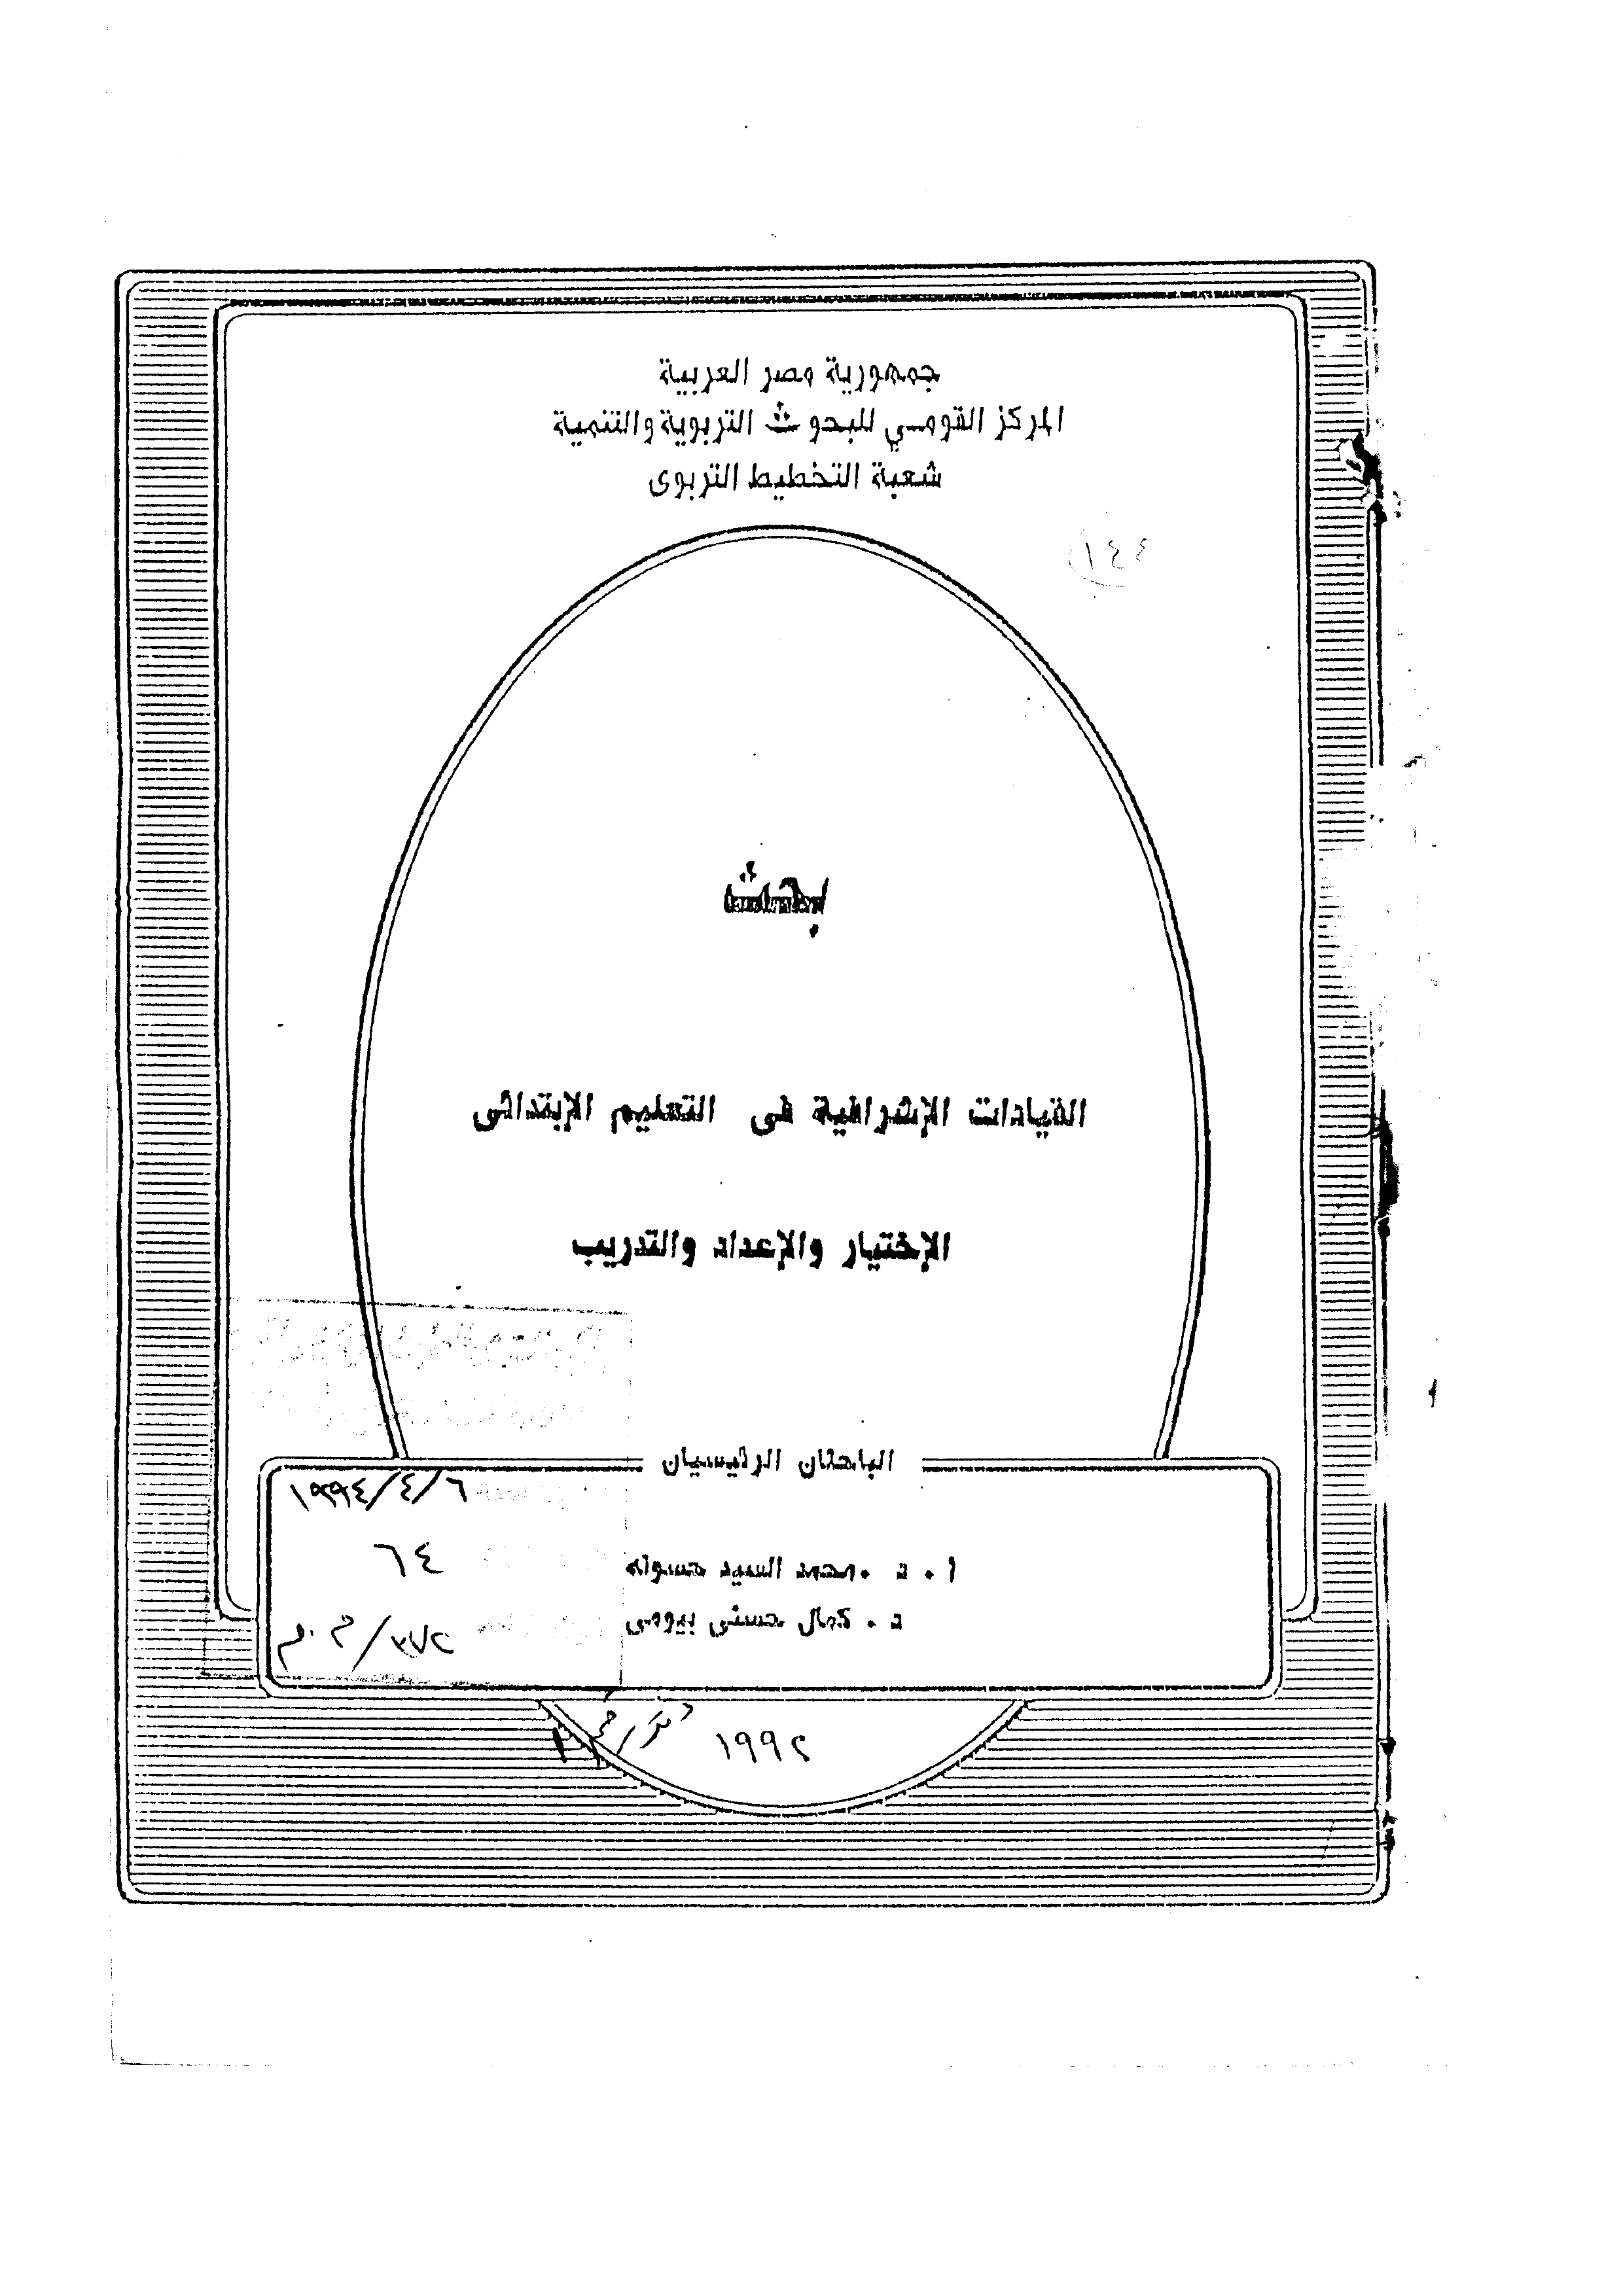 جمهورية مصر العربية
المركز القومي للبحوث التربوية والتنمية
شعبة التخطيط التربوى
١٤٤
بحث
القيادات الإشرافية فى التعليم الإبتدائى
الإختيار والإعداد والتدريب
الباحثان الرئيسيان
١٩٩٤/٤/٦
ا . د . محمد السيد حسونه
٦٤
د . كمال حسنى بيومى
١٩٩٢